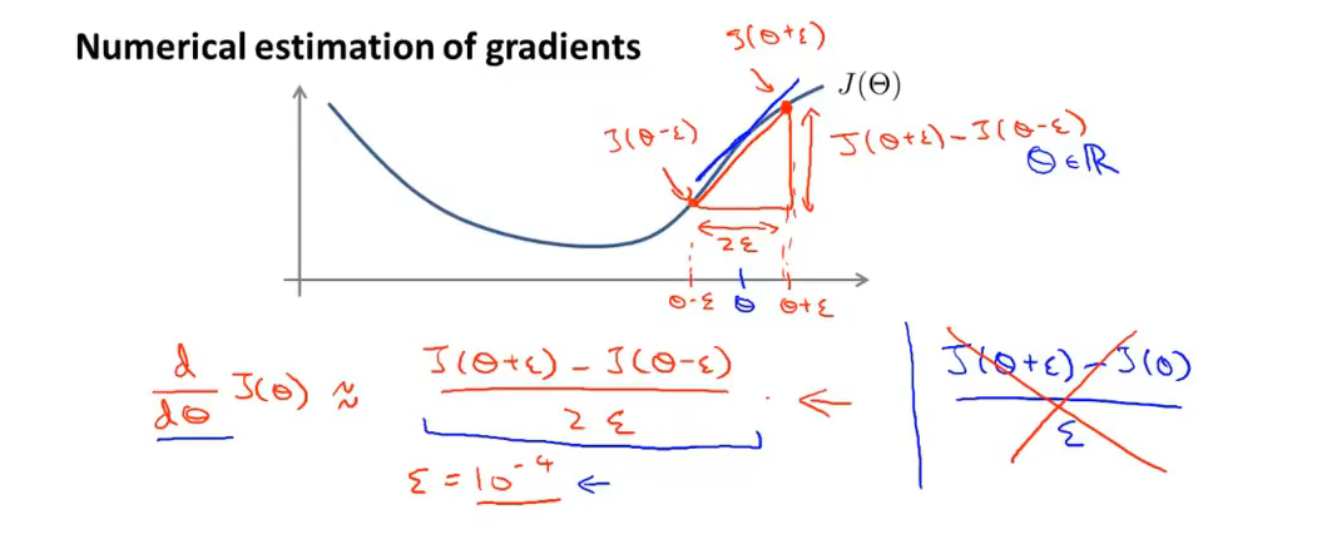 Numerical estimation of gradients
J(θ+ε)
J(Θ)
J(θ-ε)
J(θ+ε)-J(θ-ε)
θ ∈ ℝ
2ε
θ-ε θ θ+ε
d/dθ J(θ) ≈ (J(θ+ε) - J(θ-ε))/2ε ←
(J(θ+ε) - J(θ))/ε
ε = 10⁻⁴ ←